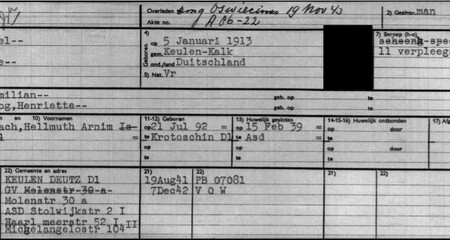 Overleden Oswiecim 19 Nov 43
Akte no. A 06-22
2) Gezinsw. man
4) op 5 Januari 1913
gem. Keulen-Kalk
ond./land Duitschland
5) Nat. Vr
7) Beroep
11 verpleeg
milian--
geb. op te
og,Henriette--
geb. op te
10) Voornamen 11-12) Geboren 13) Huwelijk gesloten 14-15-16) Huwelijk ontbonden 17)
ach,Hellmuth Arnim Is- op 21 Jul 92 = op 15 Feb 39 = op door
te Krotoschin Dl = te Asd = te
op op op door
te te te
22) Gemeente en adres 21) 22) 21) 22)
KEULEN DEUTZ Dl 19Aug41 PB 07081
GV Molenstr 30 a 7Dec42 V O W
Molenstr 30 a
ASD Stolwijkstr 2 I
Haarl meerstr 52 I
Michelangelostr 104 II